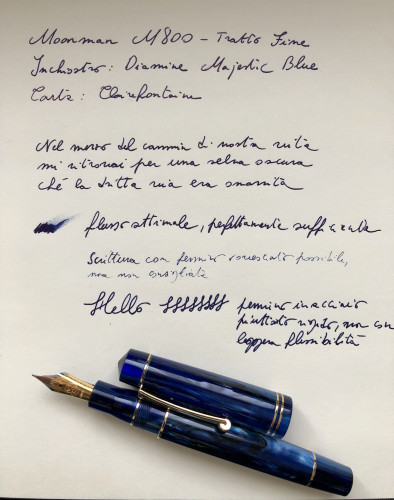 Moonman M800 - Tratto Fine
Inchiostro: Diamine Majestic Blue
Carta: Clairefontaine
Nel mezzo del cammin di nostra vita
mi ritrovai per una selva oscura
ché la dritta via era smarrita
flusso ottimale, perfettamente sufficiente
Scrittura con pennino rovesciato possibile,
ma non consigliata
Hello ffffffff
pennino in acciaio
piuttosto rigido, ma con
leggera flessibilità